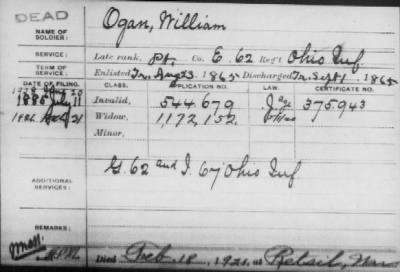 DEAD
NAME OF SOLDIER: Ogan, William
SERVICE: Late rank, Pt. Co. E. 62 Reg't Ohio Inf
TERM OF SERVICE: Enlisted Aug 3, 1865 Discharged Sept 1, 1865
DATE OF FILING. CLASS. APPLICATION NO. LAW. CERTIFICATE NO.
1885 July 11 Invalid, 544679 375.943
Widow, 1,172,152 Ohio
Minor,
ADDITIONAL SERVICES: G. 62 and I. 67 Ohio Inf
REMARKS:
Died Feb. 18, 1921, at